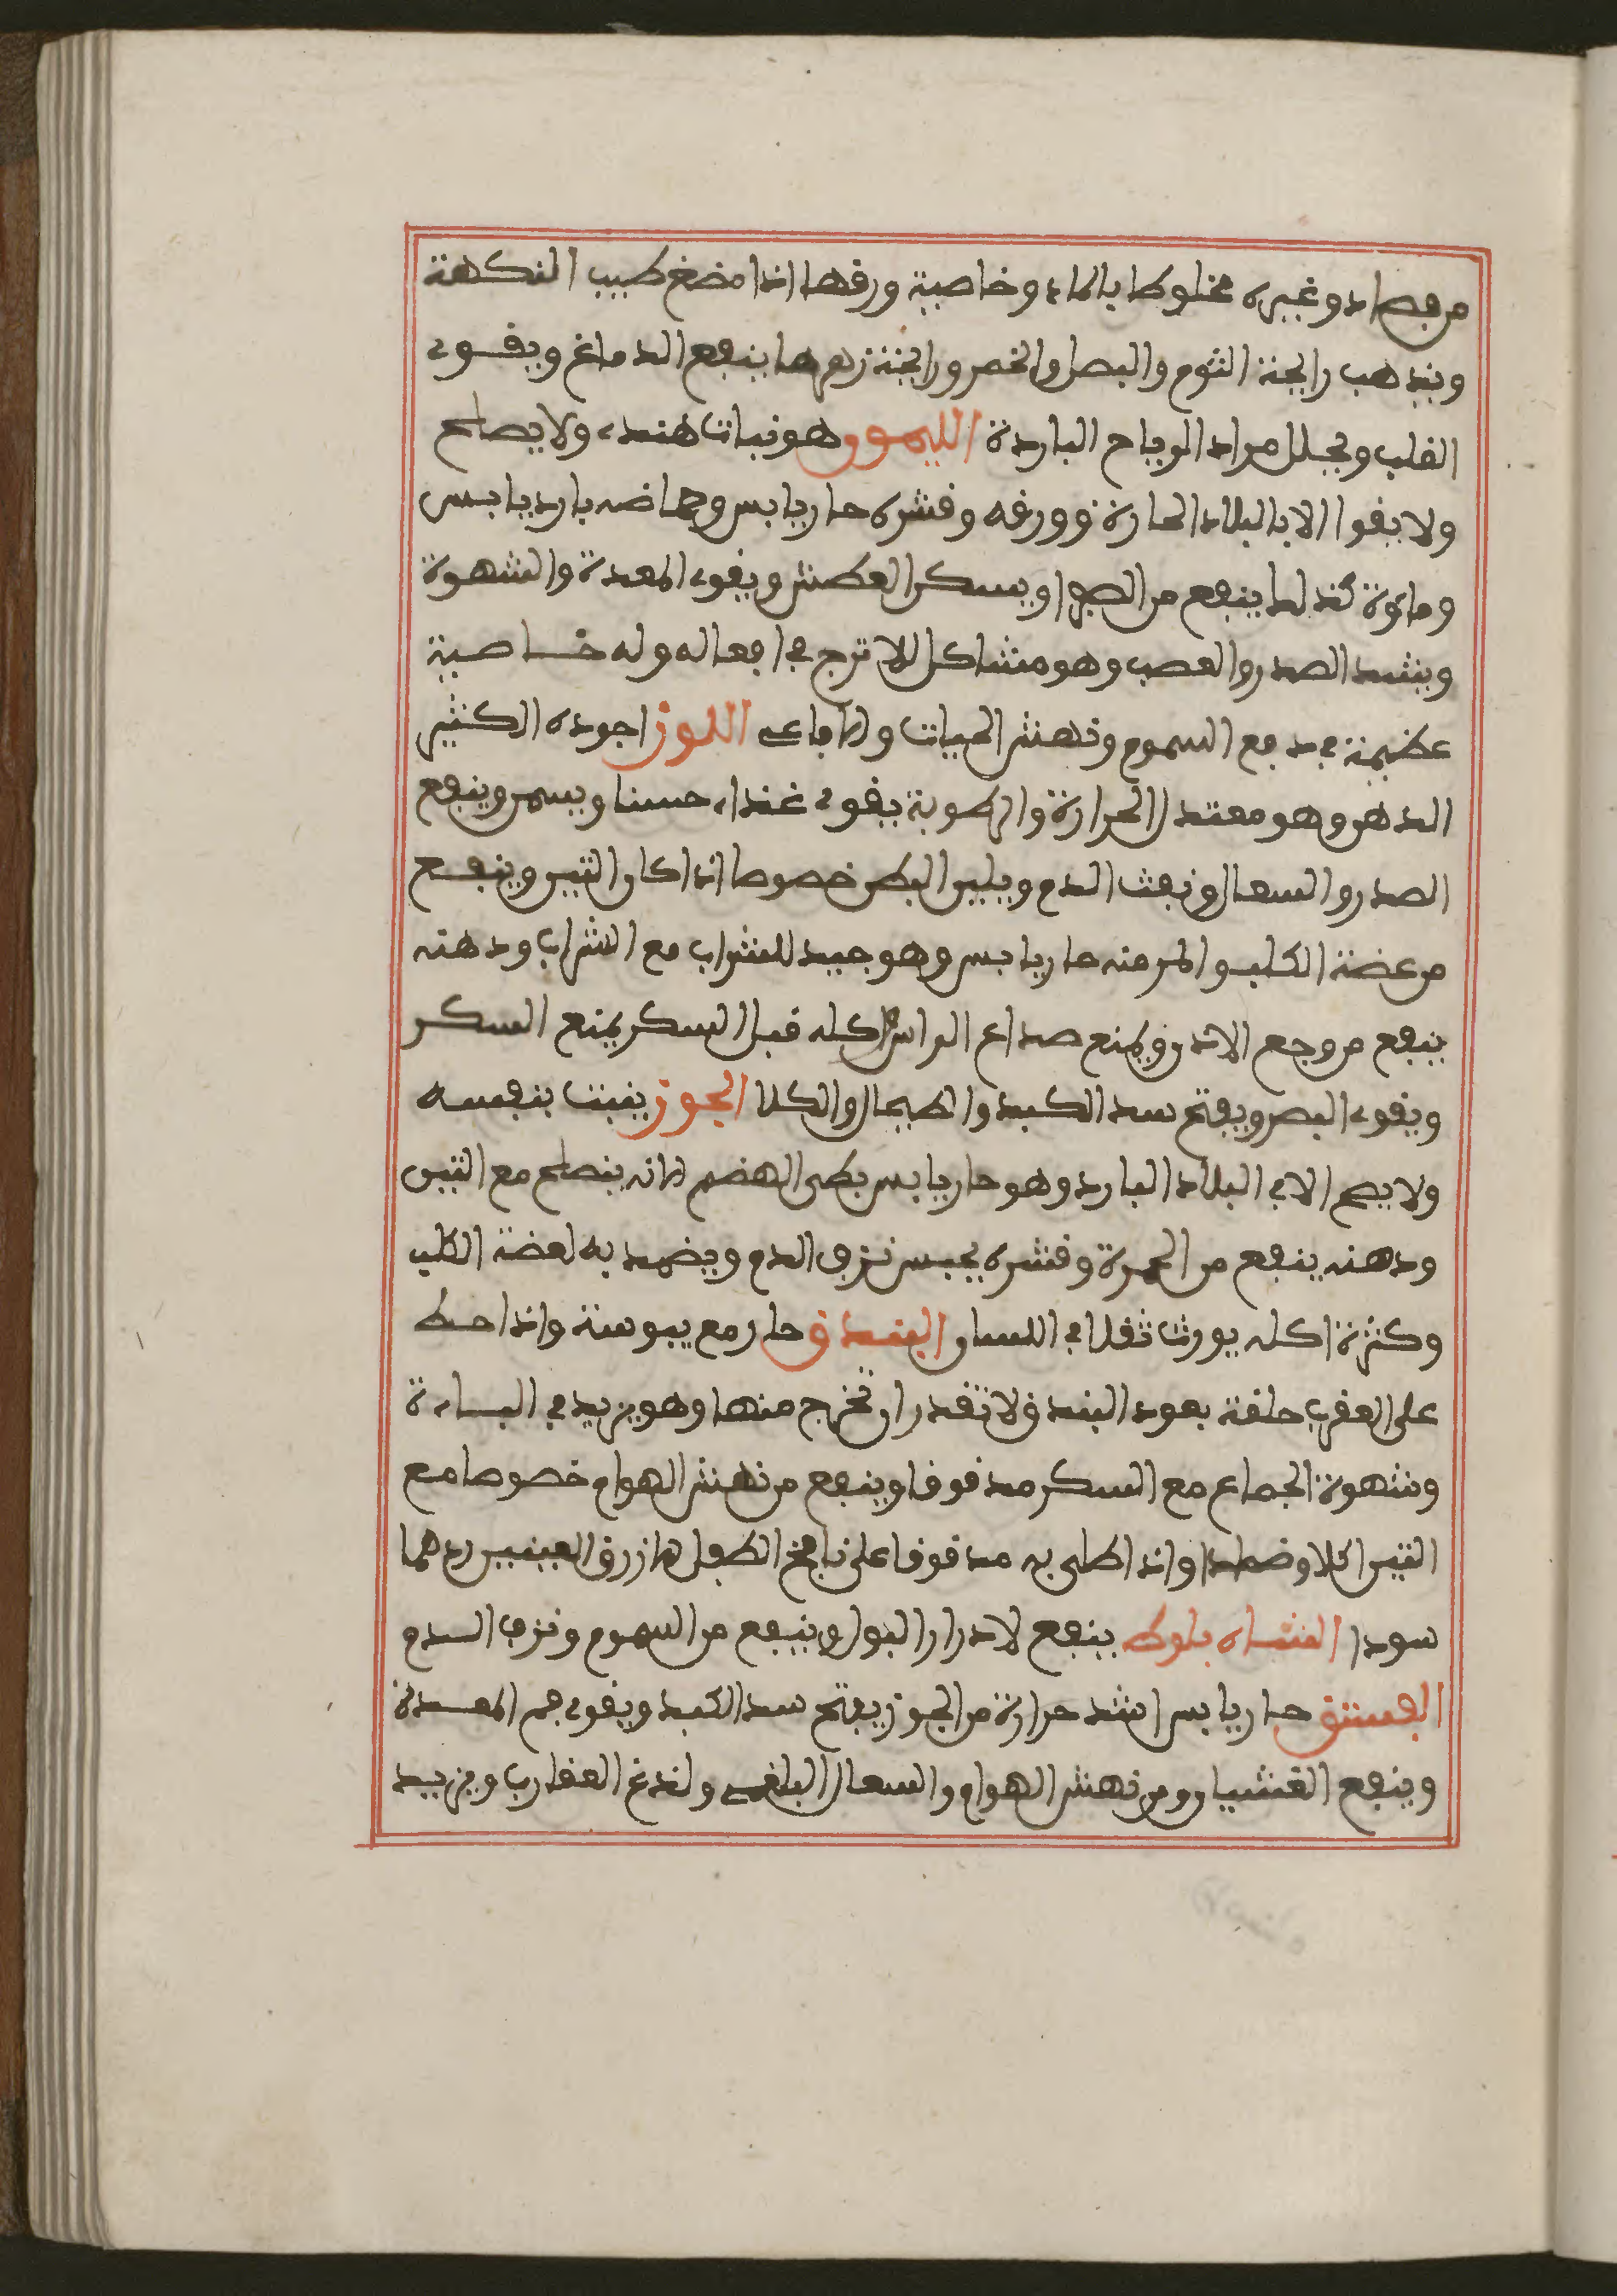 من فصاد وغيره مخلوطا بالماء وخاصية ورقها اذا مضغ طيب النكهة
ويذهب رايحة الثوم والبصل والخمر ورايحة زهرها ينفع الدماغ ويقوى
القلب ويحلل من اد الرياح الباردة الليمون هو نبات هندى ولا يصلح
ولا يقوا الا بالبلاد الحارة وورقه وقشره حار يابس وحماضه بارد يابس
وماؤه كذلك ينفع من الصفرا ويسكن العطش ويقوى المعدة والشهوة
ويشد الصدر والعصب وهو مشاكل للاترج في افعاله وله خاصية
عظيمة في دفع السموم ونهش الحيات والافاعى اللوز اجوده الكثير
الدهن وهو معتدل الحرارة والرطوبة يقوى غذاء حسنا ويسمن وينفع
الصدر والسعال ونفث الدم ويلين البطن خصوصا اذا كان التين وينفع
من عضة الكلب والمر منه حار يابس وهو جيد للشراب مع الشراب ودهنه
ينفع من وجع الاذن ويمنع صداع الراس اكله قبل السكر يمنع السكر
ويقوى البصر ويفتح سدد الكبد والطحال والكلا الجوز ينبت بنفسه
ولا يصح الا في البلاد البارد وهو حار يابس بطى الهضم لانه ينصلح مع التين
ودهنه ينفع من الحمرة وقشره يحبس نزف الدم ويضمد به لعضة الكلب
وكثرة اكله يورث ثقلا في اللسان البندق حار مع يبوسة واذا حط
على العقرب حلقة بعود البندق لا تقدر ان تخرج منها وهو يزيد في الباءة
وشهوة الجماع مع السكر مدقوقا وينفع من نهش الهوام خصوصا مع
التين اكلا وضمادا واذا طلى به مدقوقا على نافخ الطفل الازرق العينين ردهما
سودا الشاه بلوط ينفع لادرار البول وينفع من السموم ونزف الدم
الفستق حار يابس اشد حرارة من الجوز يفتح سدد الكبد ويقوى فم المعدة
وينفع الغشيان ومن نهش الهوام والسعال البلغمى ولذغ العقارب ويزيد